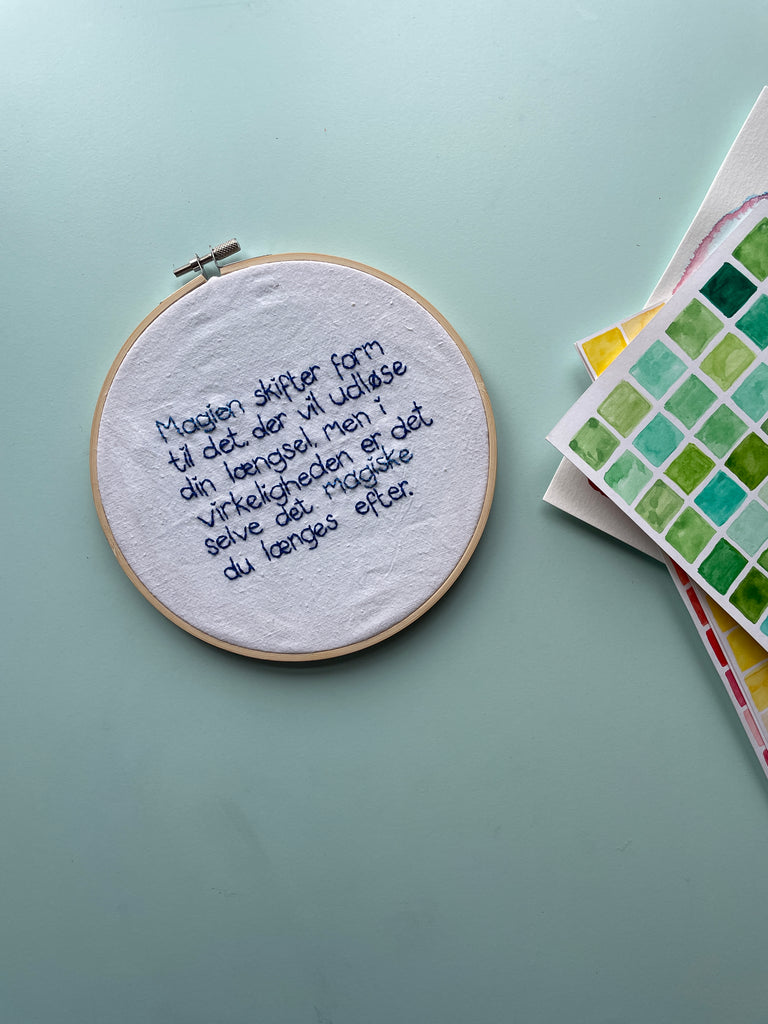 Magien skifter form
til det, der vil udløse
din længsel, men i
virkeligheden er det
selve det magiske
du længes efter.